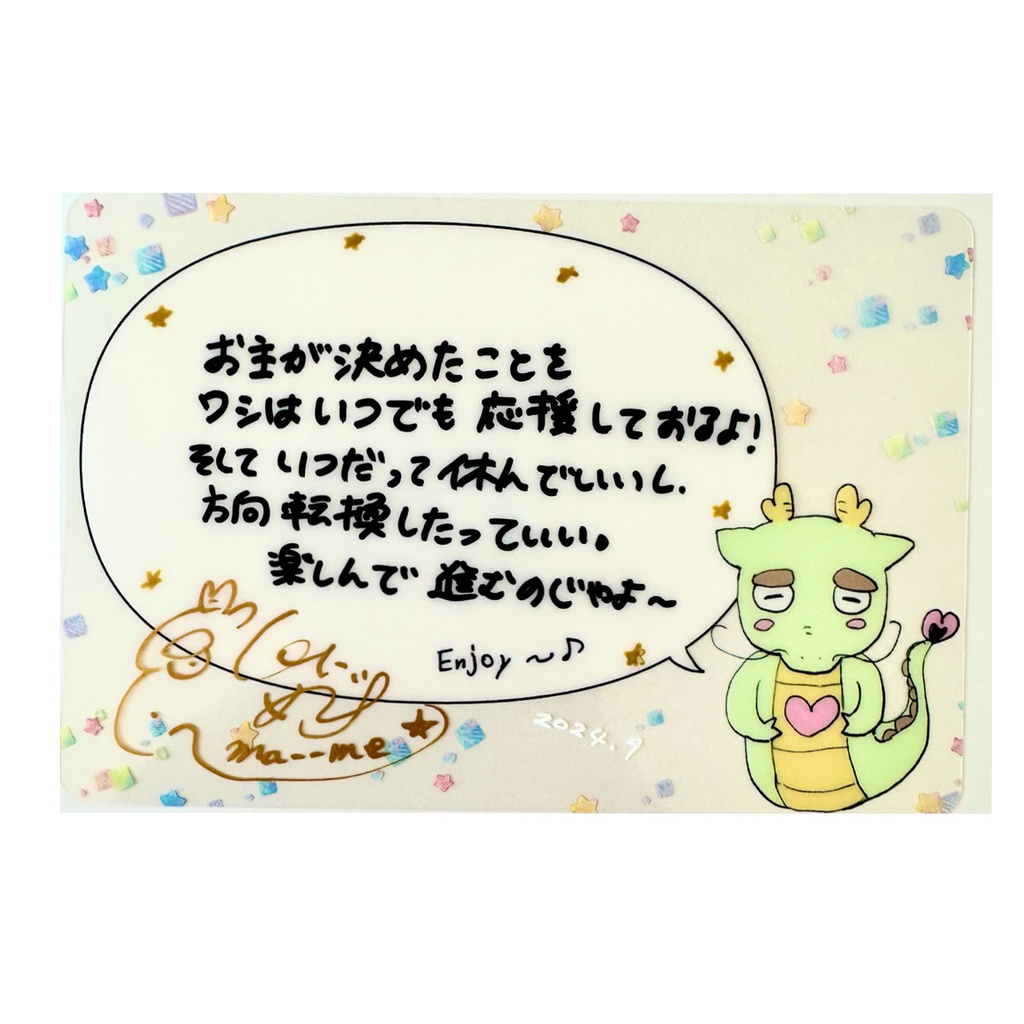 お主が決めたことを
ワシはいつでも応援しておるよ!
そして いつだって休んでいいし、
方向転換したっていい。
楽しんで進むのじゃよ〜
Enjoy〜♪
ma--me
2024.9